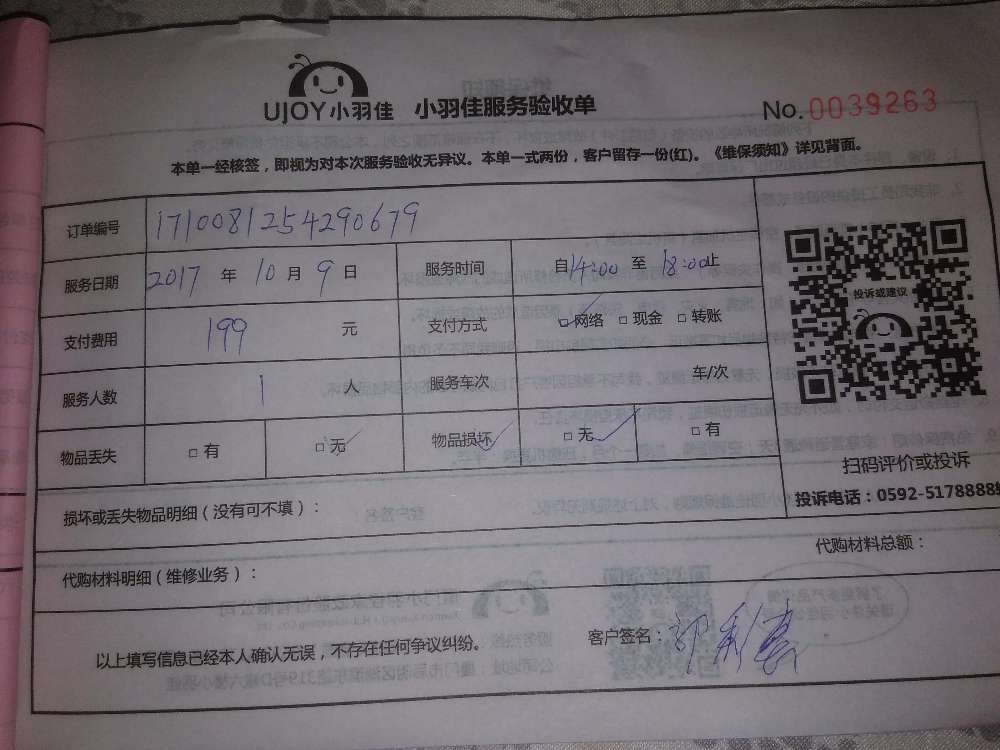 UJOY小羽佳 小羽佳服务验收单 No.0039263
本单一经核签，即视为对本次服务验收无异议。本单一式两份，客户留存一份(红)。《维保须知》详见背面。
订单编号 171008125429067​9
服务日期 2017 年 10 月 9 日 服务时间 自14:00 至 18:00止
投诉或建议
支付费用 199 元 支付方式 ☑网络 □现金 □转账
服务人数 1 人 服务车次 车/次
物品丢失 □有 ☑无 物品损坏 ☑无 □有
扫码评价或投诉
投诉电话：0592-5178888
损坏或丢失物品明细（没有可不填）：
代购材料总额：
代购材料明细（维修业务）：
以上填写信息已经本人确认无误，不存在任何争议纠纷。 客户签名：